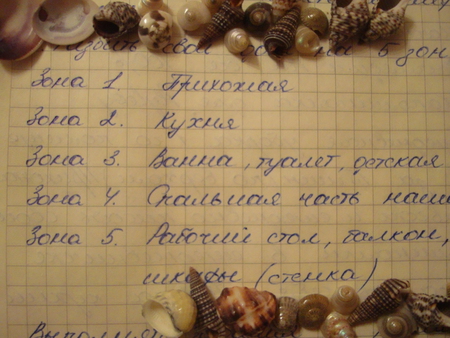 на 5 зон
Зона 1. Прихожая
Зона 2. Кухня
Зона 3. Ванна, туалет, детская
Зона 4. Спальная часть наше
Зона 5. Рабочий стол, балкон,
шкафы (стенка)